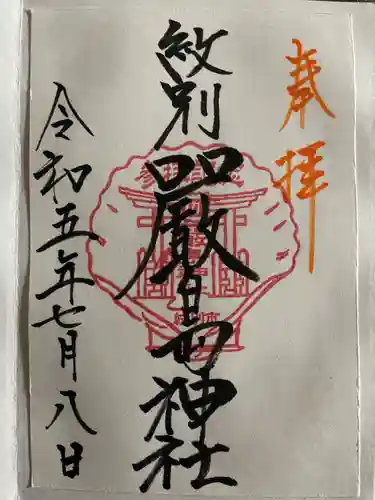 奉拝
紋別
厳島神社
令和五年七月八日